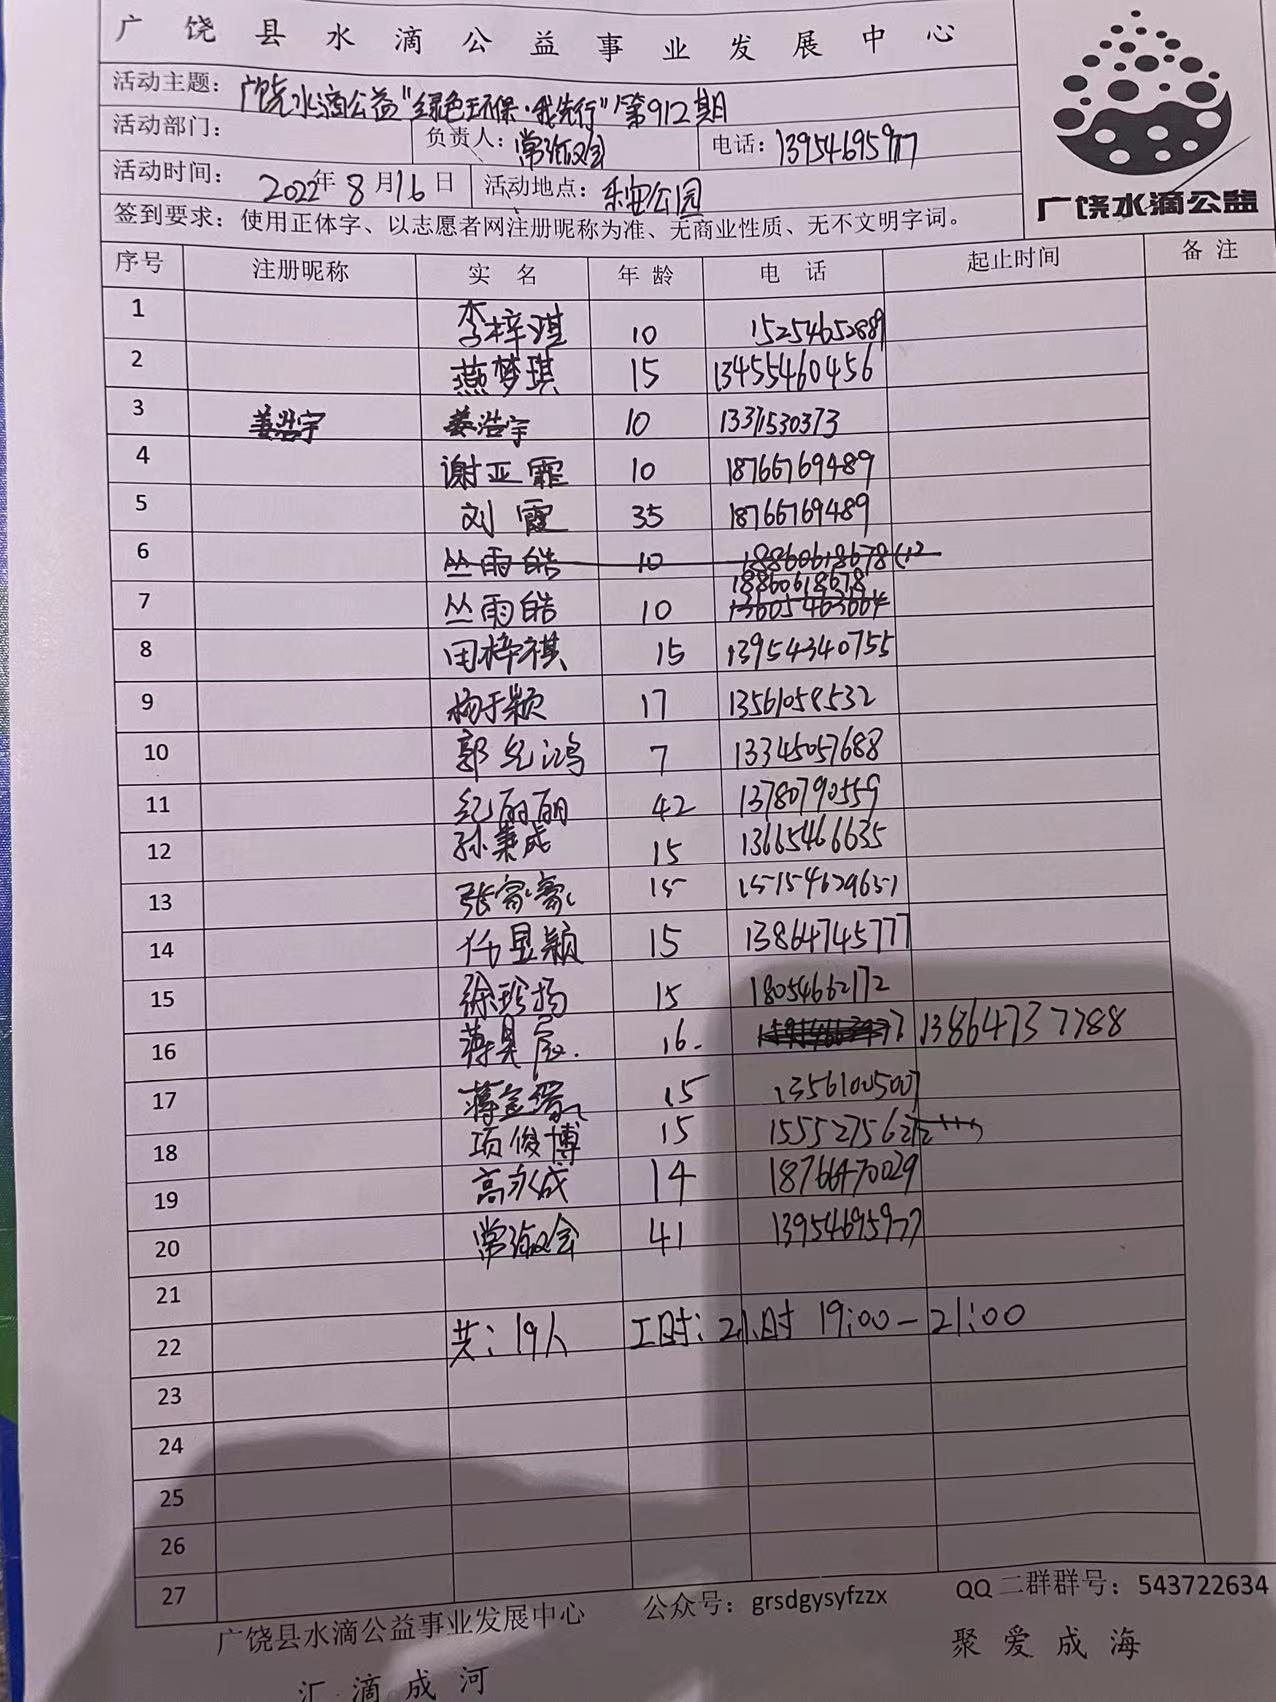 广饶县水滴公益事业发展中心
活动主题：广饶水滴公益"绿色环保·我先行"第912期
活动部门： 负责人：常 电话：13954695977
活动时间：2022年8月16日 活动地点：乐安公园
广饶水滴公益
签到要求：使用正体字、以志愿者网注册昵称为准、无商业性质、无不文明字词。
序号 注册昵称 实名 年龄 电话 起止时间 备注
1 李梓淇 10 15254652889
2 燕梦琪 15 13455460456
3 姜浩宇 姜浩宇 10 1337530373
4 谢亚霏 10 18766769489
5 刘霞 35 18766769489
6 丛雨皓 10 18860618678
7 丛雨皓 10 18860618678 13605463664
8 田梓祺 15 13954340755
9 杨于颖 17 13561058532
10 郭纪鸿 7 13345057688
11 纪丽丽 42 13780790559
12 孙秉成 15 13665466635
13 张富豪 15 15154629651
14 任显颖 15 13864745777
15 徐珍扬 15 18054662172
16 蒋昊宸 16 13864737788
17 蒋 15 13561005007
18 项俊博 15 15552756212
19 高永成 14 18766470029
20 常 41 13954695977
21
22 共：19人 工时：2小时 19:00-21:00
23
24
25
26
27
广饶县水滴公益事业发展中心 公众号：grsdgysyfzzx QQ二群群号：543722634
汇滴成河 聚爱成海